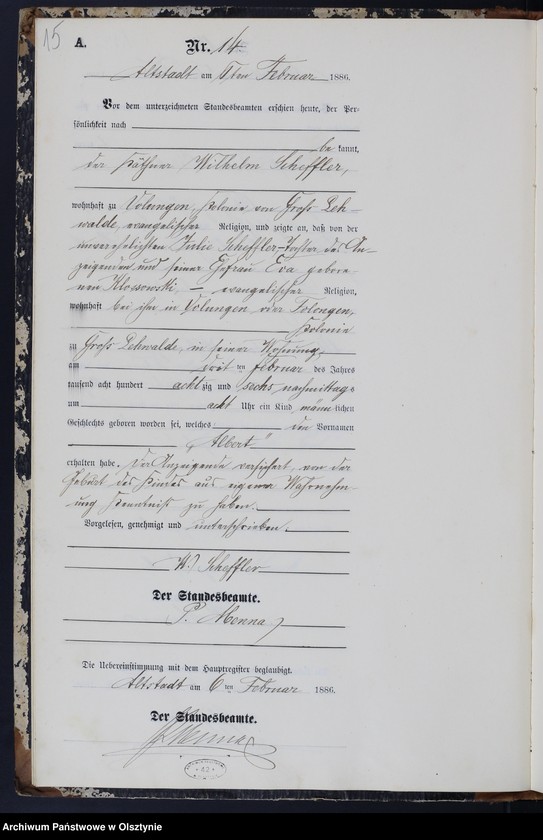 15
A. Nr. 14
Altstadt am 6ten Februar 1886.
Vor dem unterzeichneten Standesbeamten erschien heute, der Per-
sönlichkeit nach
be kannt,
der Käthner Wilhelm Scheffler,
wohnhaft zu Volungen, Kolonie von Groß Leh-
walde, evangelischer Religion, und zeigte an, daß von der
unverehelichten Julie Scheffler, Tochter des An-
zeigenden und seiner Ehefrau Eva gebore-
nen Klossowski — evangelischer Religion,
wohnhaft bei ihm in Volungen oder Folongen,
Kolonie
zu Groß Lehwalde, in seiner Wohnung,
am Februar des Jahres
tausend acht hundert achtzig und sechs nachmittags
um acht Uhr ein Kind männlichen
Geschlechts geboren worden sei, welches den Vornamen
„Albert"
erhalten habe. Der Anzeigende versichert, von der
Geburt des Kindes aus eigener Wahrnehm-
ung Kenntniß zu haben.
Vorgelesen, genehmigt und unterschrieben.
W. Scheffler
Der Standesbeamte.
P. Menna
Die Uebereinstimmung mit dem Hauptregister beglaubigt.
Altstadt am 6ten Februar 1886.
Der Standesbeamte.
Menna
Archiwum Państwowe w Olsztynie